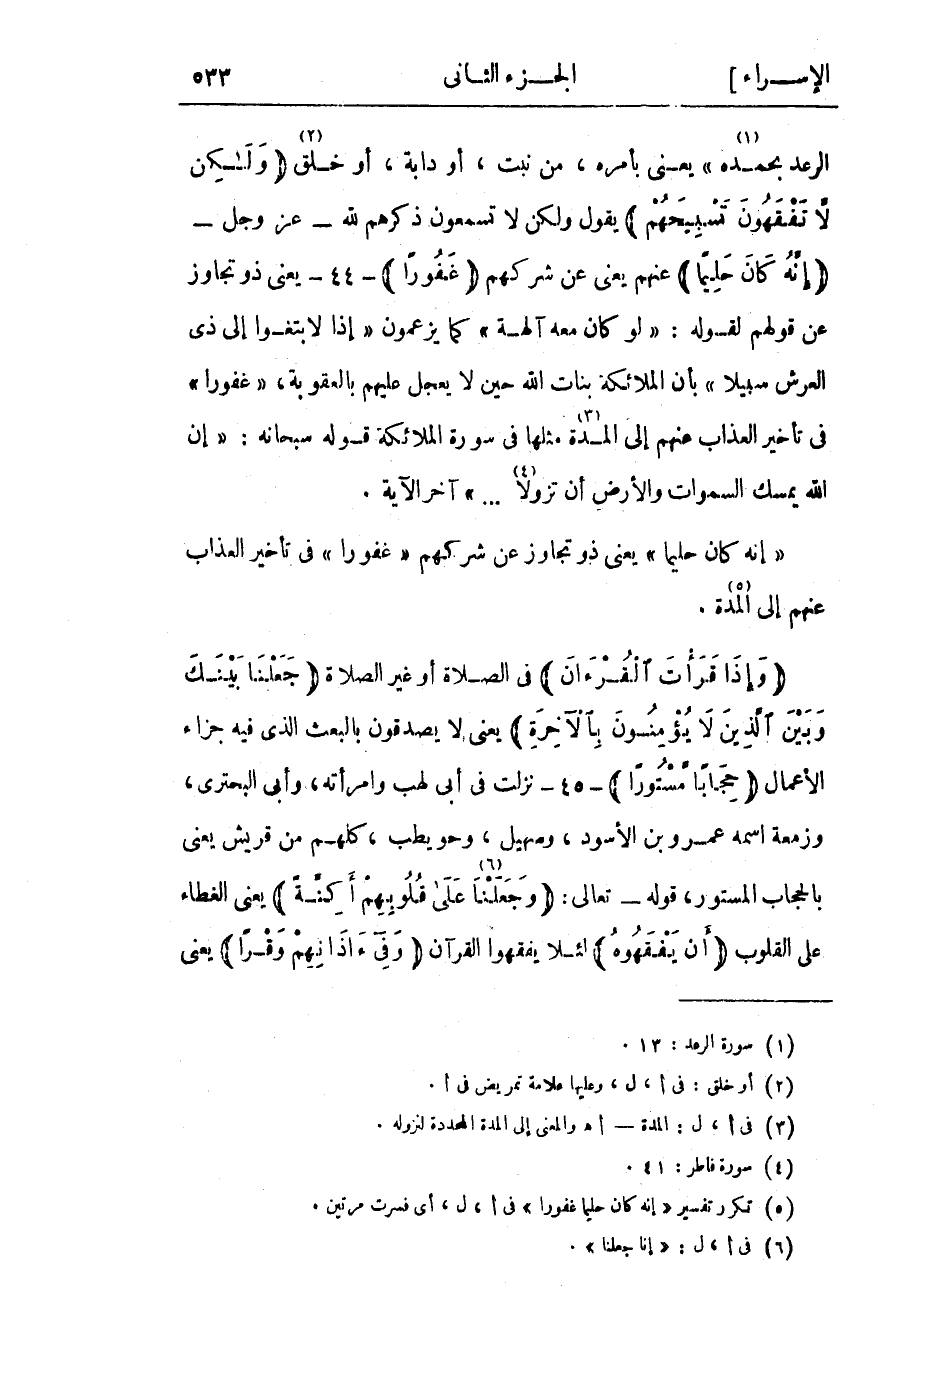 الإسراء ] الجزء الثانى ٥٣٣
الرعد بحمده (١) » يعنى بأمره ، من نبت ، أو دابة ، أو خلق (٢) ﴿ وَلَـٰكِن
لَّا تَفْقَهُونَ تَسْبِيحَهُمْ ﴾ يقول ولكن لا تسمعون ذكرهم لله ــ عز وجل ــ
﴿ إِنَّهُ كَانَ حَلِيمًا ﴾ عنهم يعنى عن شركهم ﴿ غَفُورًا ﴾ ــ ٤٤ ــ يعنى ذو تجاوز
عن قولهم لقوله : « لو كان معه آلهة » كما يزعمون « إذا لابتغوا إلى ذى
العرش سبيلا » بأن الملائكة بنات الله حين لا يعجل عليهم بالعقوبة ، « غفورا »
فى تأخير العذاب عنهم إلى المدة (٣) مثلها فى سورة الملائكة قوله سبحانه : « إن
الله يمسك السموات والأرض أن تزولا (٤) ... » آخر الآية .
« إنه كان حليما » يعنى ذو تجاوز عن شركهم « غفورا » فى تأخير العذاب
عنهم إلى المدة (٥) .
﴿ وَإِذَا قَرَأْتَ ٱلْقُرْءَانَ ﴾ فى الصلاة أو غير الصلاة ﴿ جَعَلْنَا بَيْنَكَ
وَبَيْنَ ٱلَّذِينَ لَا يُؤْمِنُونَ بِٱلْآخِرَةِ ﴾ يعنى لا يصدقون بالبعث الذى فيه جزاء
الأعمال ﴿ حِجَابًا مَّسْتُورًا ﴾ ــ ٤٥ ــ نزلت فى أبى لهب وامرأته ، وأبى البحترى ،
وزمعة اسمه عمرو بن الأسود ، وسهيل ، وحويطب ، كلهم من قريش يعنى
بالحجاب المستور ، قوله ــ تعالى : ﴿ وَجَعَلْنَا (٦) عَلَىٰ قُلُوبِهِمْ أَكِنَّةً ﴾ يعنى الغطاء
على القلوب ﴿ أَن يَفْقَهُوهُ ﴾ لئلا يفقهوا القرآن ﴿ وَفِىٓ ءَاذَانِهِمْ وَقْرًا ﴾ يعنى
(١) سورة الرعد : ١٣ .
(٢) أو خلق : فى أ ، ل ، وعليها علامة تمريض فى أ .
(٣) فى أ ، ل : المدة ــ أ ه والمعنى إلى المدة المحددة لنزوله .
(٤) سورة فاطر : ٤١ .
(٥) تكرر تفسير « إنه كان حليما غفورا » فى أ ، ل ، أى فسرت مرتين .
(٦) فى أ ، ل : « إنا جعلنا » .